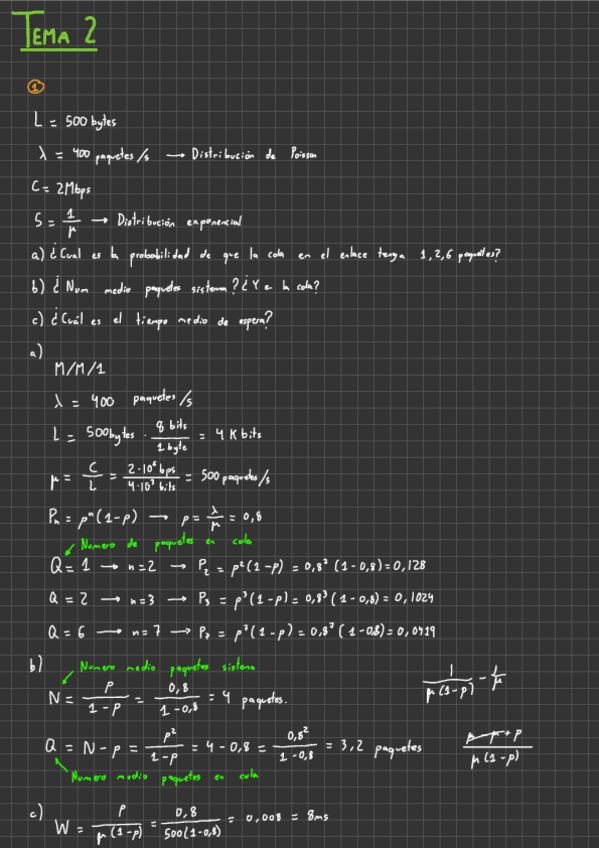 TEMA 2
1
L = 500 bytes
λ = 400 paquetes/s → Distribución de Poisson
C = 2Mbps
S = 1/μ → Distribución exponencial
a) ¿Cual es la probabilidad de que la cola en el enlace tenga 1,2,6 paquetes?
b) ¿Num medio paquetes sistema? ¿Y en la cola?
c) ¿Cuál es el tiempo medio de espera?
a)
M/M/1
λ = 400 paquetes/s
L = 500bytes · 8 bits/1 byte = 4 Kbits
μ = C/L = 2·10⁶ bps/4·10³ bits = 500 paquetes/s
Pₙ = ρⁿ(1-ρ) → ρ = λ/μ = 0,8
Numero de paquetes en cola
Q = 1 → n=2 → P₂ = ρ²(1-ρ) = 0,8²(1-0,8) = 0,128
Q = 2 → n=3 → P₃ = ρ³(1-ρ) = 0,8³(1-0,8) = 0,1024
Q = 6 → n=7 → P₇ = ρ⁷(1-ρ) = 0,8⁷(1-0,8) = 0,0419
b) Numero medio paquetes sistema
N = ρ/(1-ρ) = 0,8/(1-0,8) = 4 paquetes.
1/(μ(1-ρ)) - 1/μ
Q = N-ρ = ρ²/(1-ρ) = 4-0,8 = 0,8²/(1-0,8) = 3,2 paquetes
(ρ-ρ+ρ)/(μ(1-ρ))
Numero medio paquetes en cola
c) W = ρ/(μ(1-ρ)) = 0,8/(500(1-0,8)) = 0,008 = 8ms